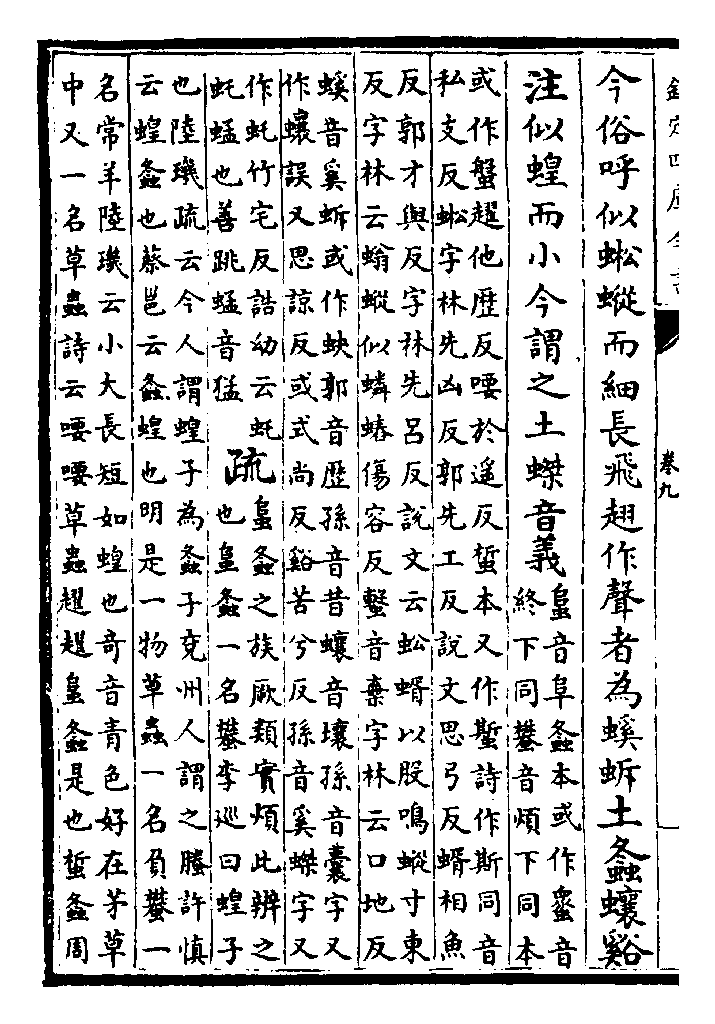 欽定四庫全書
卷九
今俗呼似蜙𧑓而細長飛翅作聲者為螇蚸土螽蠰谿
注似蝗而小今謂之土蠂音義
𨸏音阜螽本或作蚤音
終下同蠜音煩下同本
或作盤趯他歴反喓於遥反蜤本又作蟴詩作斯同音
私支反蜙字林先凶反郭先工反説文思弓反蝑相魚
反郭才與反字林先吕反説文云蚣蝑以股鳴𧑓寸東
反字林云螉𧑓似蝽傷容反蟿音棄字林云口地反
螇音奚蚸或作蚗郭音歴孫音昔蠰音壤孫音囊字又
作蠰誤又思諒反或式尚反谿苦兮反孫音奚蠂字又
作虴竹宅反誥幼云虴
虴蜢也善跳蜢音猛
疏
𨸏螽之族厥類實煩此辨之
也𨸏螽一名蠜李巡曰蝗子
也陸璣疏云今人謂蝗子為螽子兖州人謂之螣許慎
云蝗螽也蔡邕云螽蝗也明是一物草蟲一名負蠜一
名常羊陸璣云小大長短如蝗也奇音青色好在茅草
中又一名草蟲詩云喓喓草蟲趯趯𨸏螽是也蜤螽周